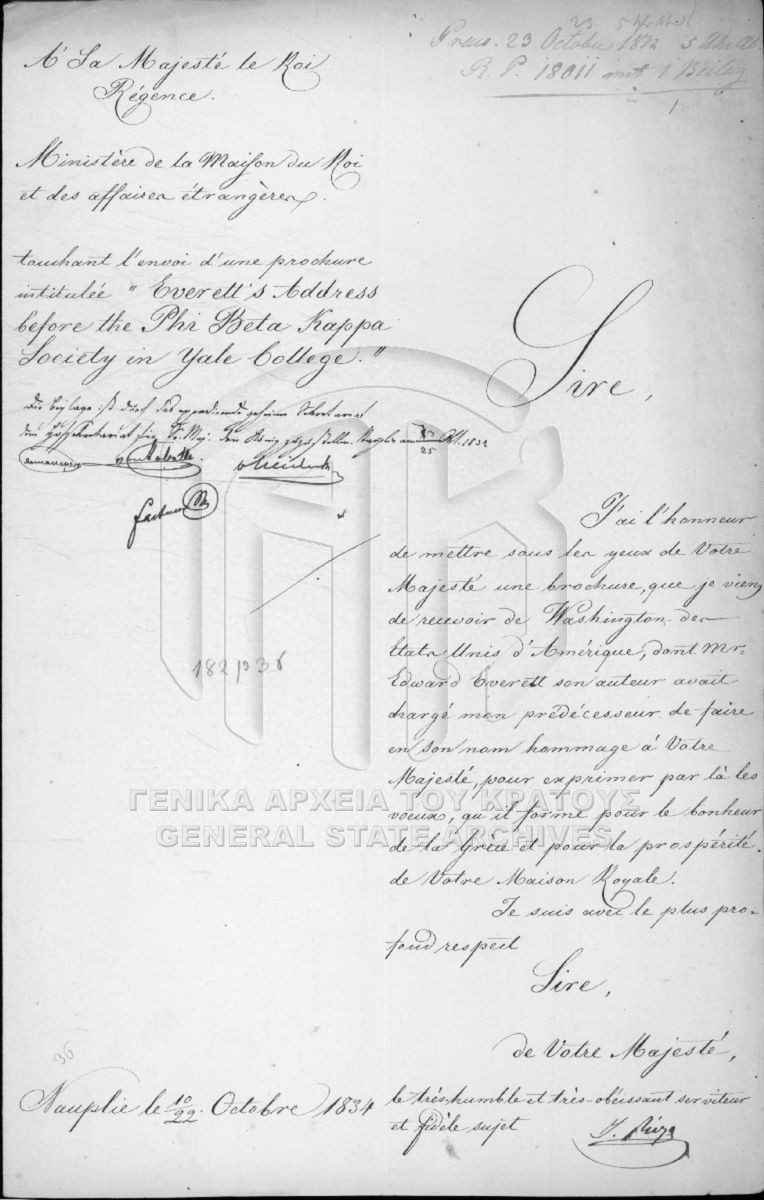 Praes. 23 Octobre 18
R. P. 18011 mit 1 Beilag
1.
A' Sa Majesté le Roi
Régence.
Ministère de la Maison du Roi
et des affaires étrangères.
touchant l'envoi d'une prochure
intitulée " Everett's Address
before the Phi Beta Kappa
Society in Yale College."
Die Beylage ist durch das expedirende geheime Sekretariat
dem Hofsekretariat für Sr. Maj. den König
25
1834
Sire,
J'ai l'honneur
de mettre sous les yeux de Votre
Majesté une brochure, que je viens
de recevoir de Washington des
Etats Unis d'Amérique, dont Mr.
Edward Everett son auteur avait
chargé mon prédécesseur de faire
en son nom hommage à Votre
Majesté, pour exprimer par là les
voeux, qu'il forme pour le bonheur
de la Grèce et pour la prospérité
de Votre Maison Royale.
Je suis avec le plus pro-
fond respect
Sire,
de Votre Majesté,
le très-humble et très-obéissant serviteur
et fidèle sujet
182
36
36
Nauplie le 10/22. Octobre 1834
ΓΕΝΙΚΑ ΑΡΧΕΙΑ ΤΟΥ ΚΡΑΤΟΥΣ
GENERAL STATE ARCHIVES